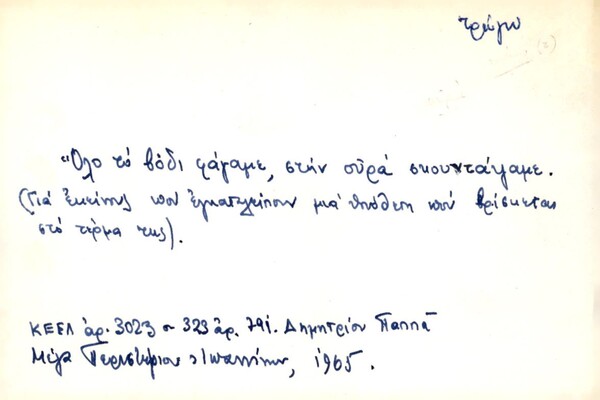 τρώγω
"Όλο τό βόδι φάγαμε, στήν οὐρά σκουντάψαμε.
(Γιά ἐκείνους πού ἐγκαταλείπουν μιά ὑπόθεση πού βρίσκεται
στό τέρμα της).
ΚΕΕΛ ἀρ. 3023 σ 323 ἀρ. 791. Δημητρίου Παππᾶ
Μέγα Περιστέριον Ἰωαννίνων, 1965.